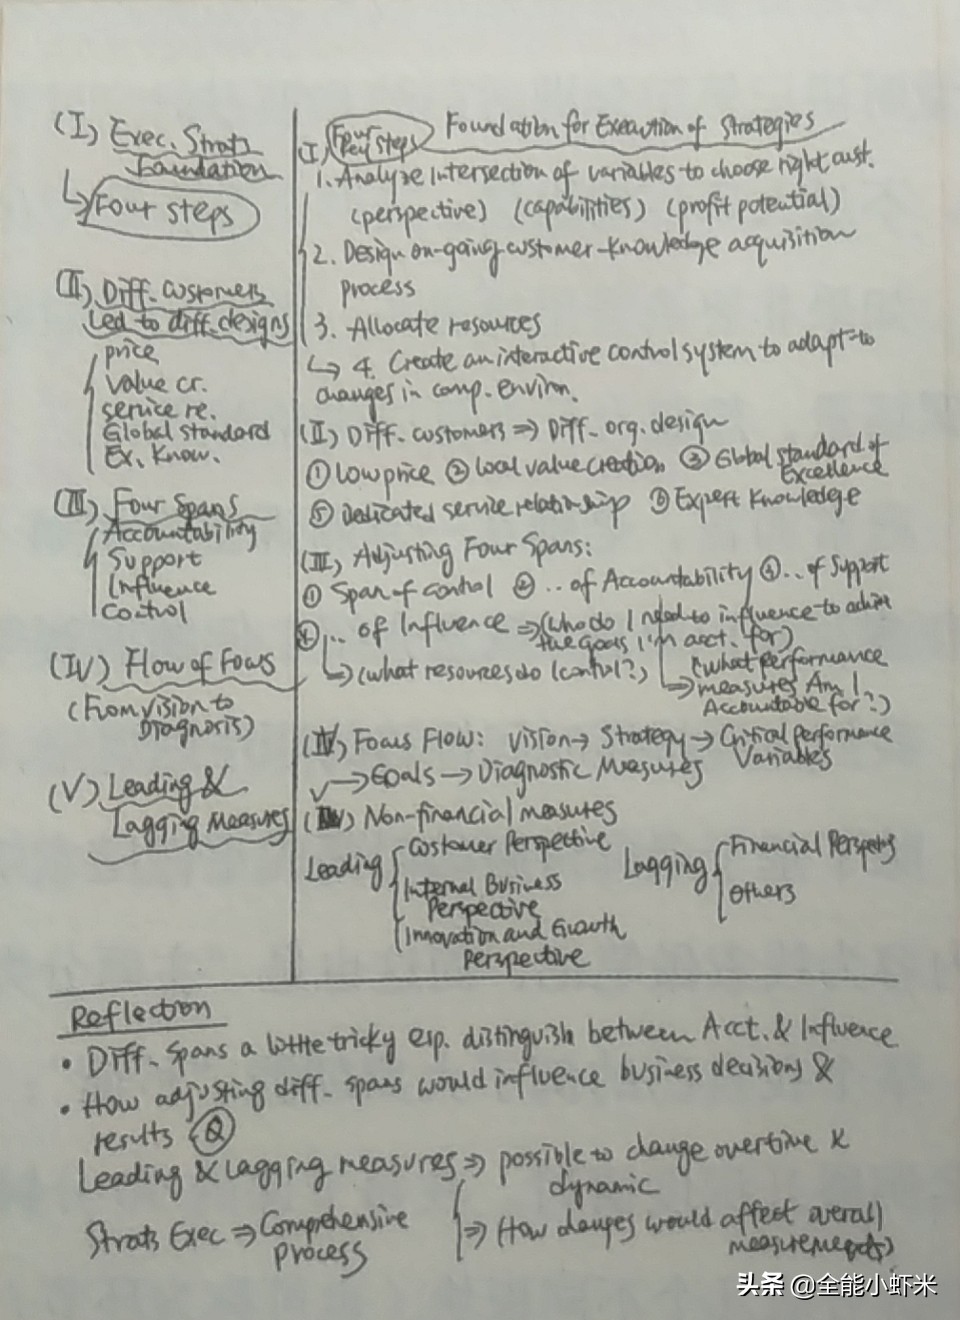 (I) Exec. Strats
Foundation
↳ Four steps
(II) Diff. customers
Led to diff. designs
price
Value cr.
service re.
Global standard
Ex. Know.
(III) Four Spans
Accountability
Support
Influence
Control
(IV) Flow of Focus
(From vision to
Diagnosis)
(V) Leading &
Lagging Measures
(I) Four Key Steps Foundation for Execution of Strategies
1. Analyze intersection of variables to choose right cust.
(perspective) (capabilities) (profit potential)
2. Design on-going customer-knowledge acquisition
process
3. Allocate resources
↳ 4. Create an interactive control system to adapt to
changes in comp. environ.
(II) Diff. customers ⇒ Diff. org. design
① Low price ② Local value creation ③ Global standard of
Excellence
⑤ Dedicated service relationship ⑥ Expert Knowledge
(III) Adjusting Four Spans:
① Span of control ② .. of Accountability ③ .. of Support
④ .. of Influence ⇒ (Who do I need to influence to achieve
the goals I'm acct. for)
↳ (what resources do I control?) (what performance
measures Am I
Accountable for?)
(IV) Focus Flow: Vision → Strategy → Critical Performance
Variables
→ Goals → Diagnostic Measures
Non-financial measures
Leading Customer Perspective
Internal Business
Perspective
Innovation and Growth
Perspective
Lagging Financial Perspective
Others
Reflection
• Diff. Spans a little tricky esp. distinguish between Acct. & Influence
• How adjusting diff. spans would influence business decisions &
results Q
Leading & Lagging measures ⇒ possible to change overtime &
dynamic
Strats Exec ⇒ Comprehensive
process
⇒ (How changes would affect overall
measurements)
头条 @全能小虾米